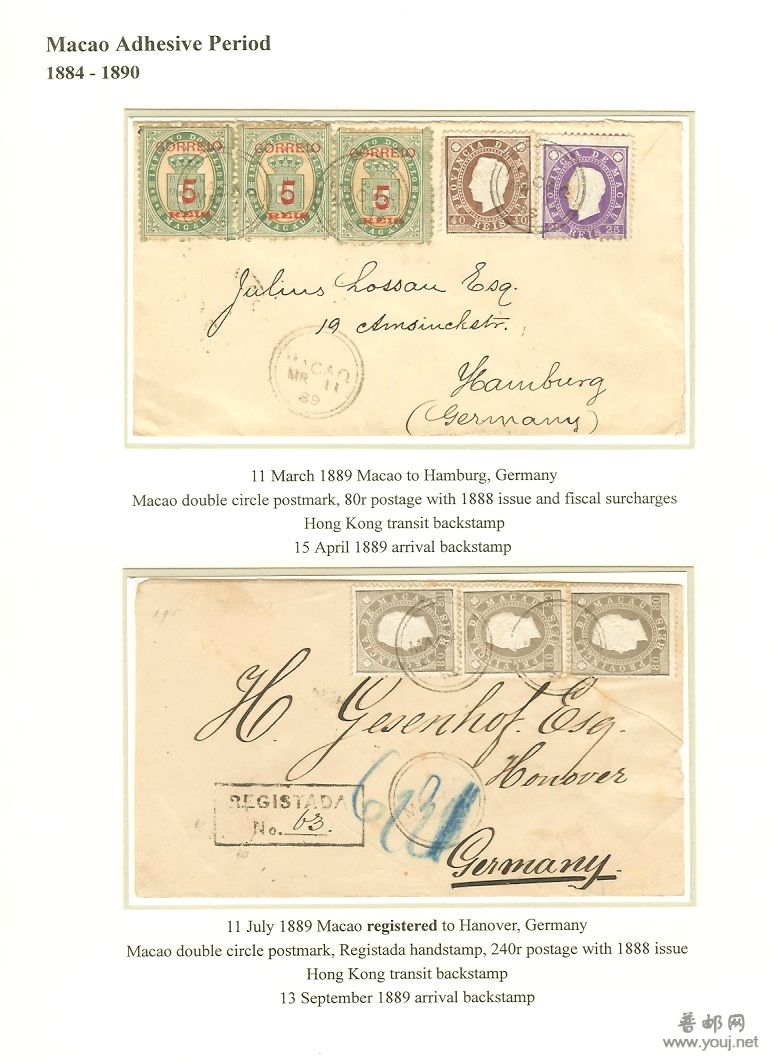 Macao Adhesive Period
1884 - 1890
CORREIO CORREIO CORREIO
5 5 5
REIS REIS REIS
PROVINCIA DE MACAU
40 REIS 40
PROVINCIA DE MACAU
25 REIS 25
Julius Lossau Esq.
19 Amsinckstr.
MACAO
MR 11
89
Hamburg
(Germany)
11 March 1889 Macao to Hamburg, Germany
Macao double circle postmark, 80r postage with 1888 issue and fiscal surcharges
Hong Kong transit backstamp
15 April 1889 arrival backstamp
PROVINCIA DE MACAU 80 REIS 80
PROVINCIA DE MACAU 80 REIS 80
PROVINCIA DE MACAU 80 REIS 80
H. Gesenhof. Esq.
Honover
REGISTADA
No. 63.
Germany.
11 July 1889 Macao registered to Hanover, Germany
Macao double circle postmark, Registada handstamp, 240r postage with 1888 issue
Hong Kong transit backstamp
13 September 1889 arrival backstamp
普邮网
www.youj.net